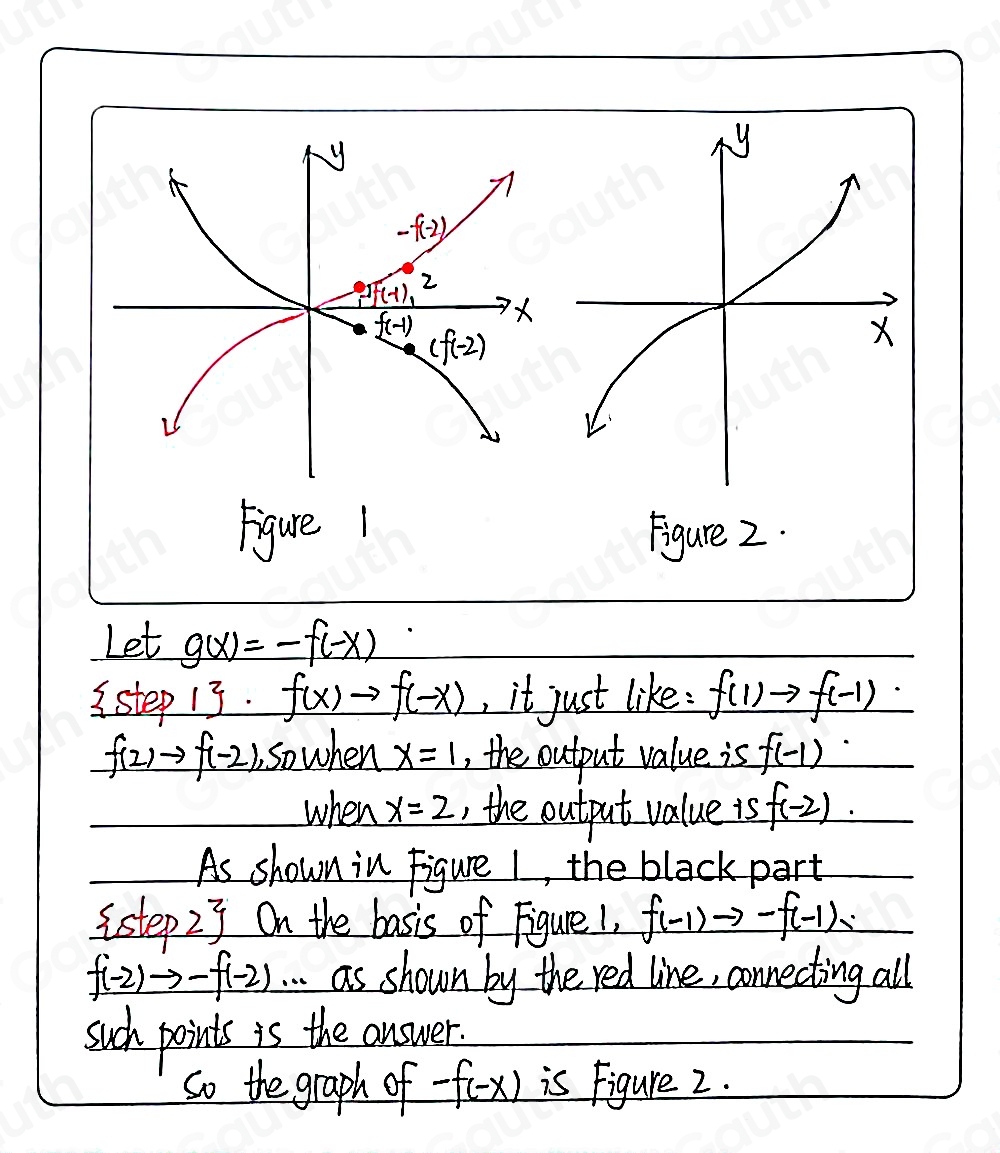 y
y
-f(-2)
2
-f(-1)
x
f(-1)
(f(-2)
x
Figure 1
Figure 2.
Let g(x) = -f(-x)
{step 1}. f(x) → f(-x), it just like: f(1) → f(-1).
f(2) → f(-2), so when x = 1, the output value is f(-1)
when x = 2, the output value is f(-2).
As shown in Figure 1, the black part
{step 2} On the basis of Figure 1, f(-1) → -f(-1)、
f(-2) → -f(-2) ... as shown by the red line, connecting all
such points is the answer.
So the graph of -f(-x) is Figure 2.
Gauth